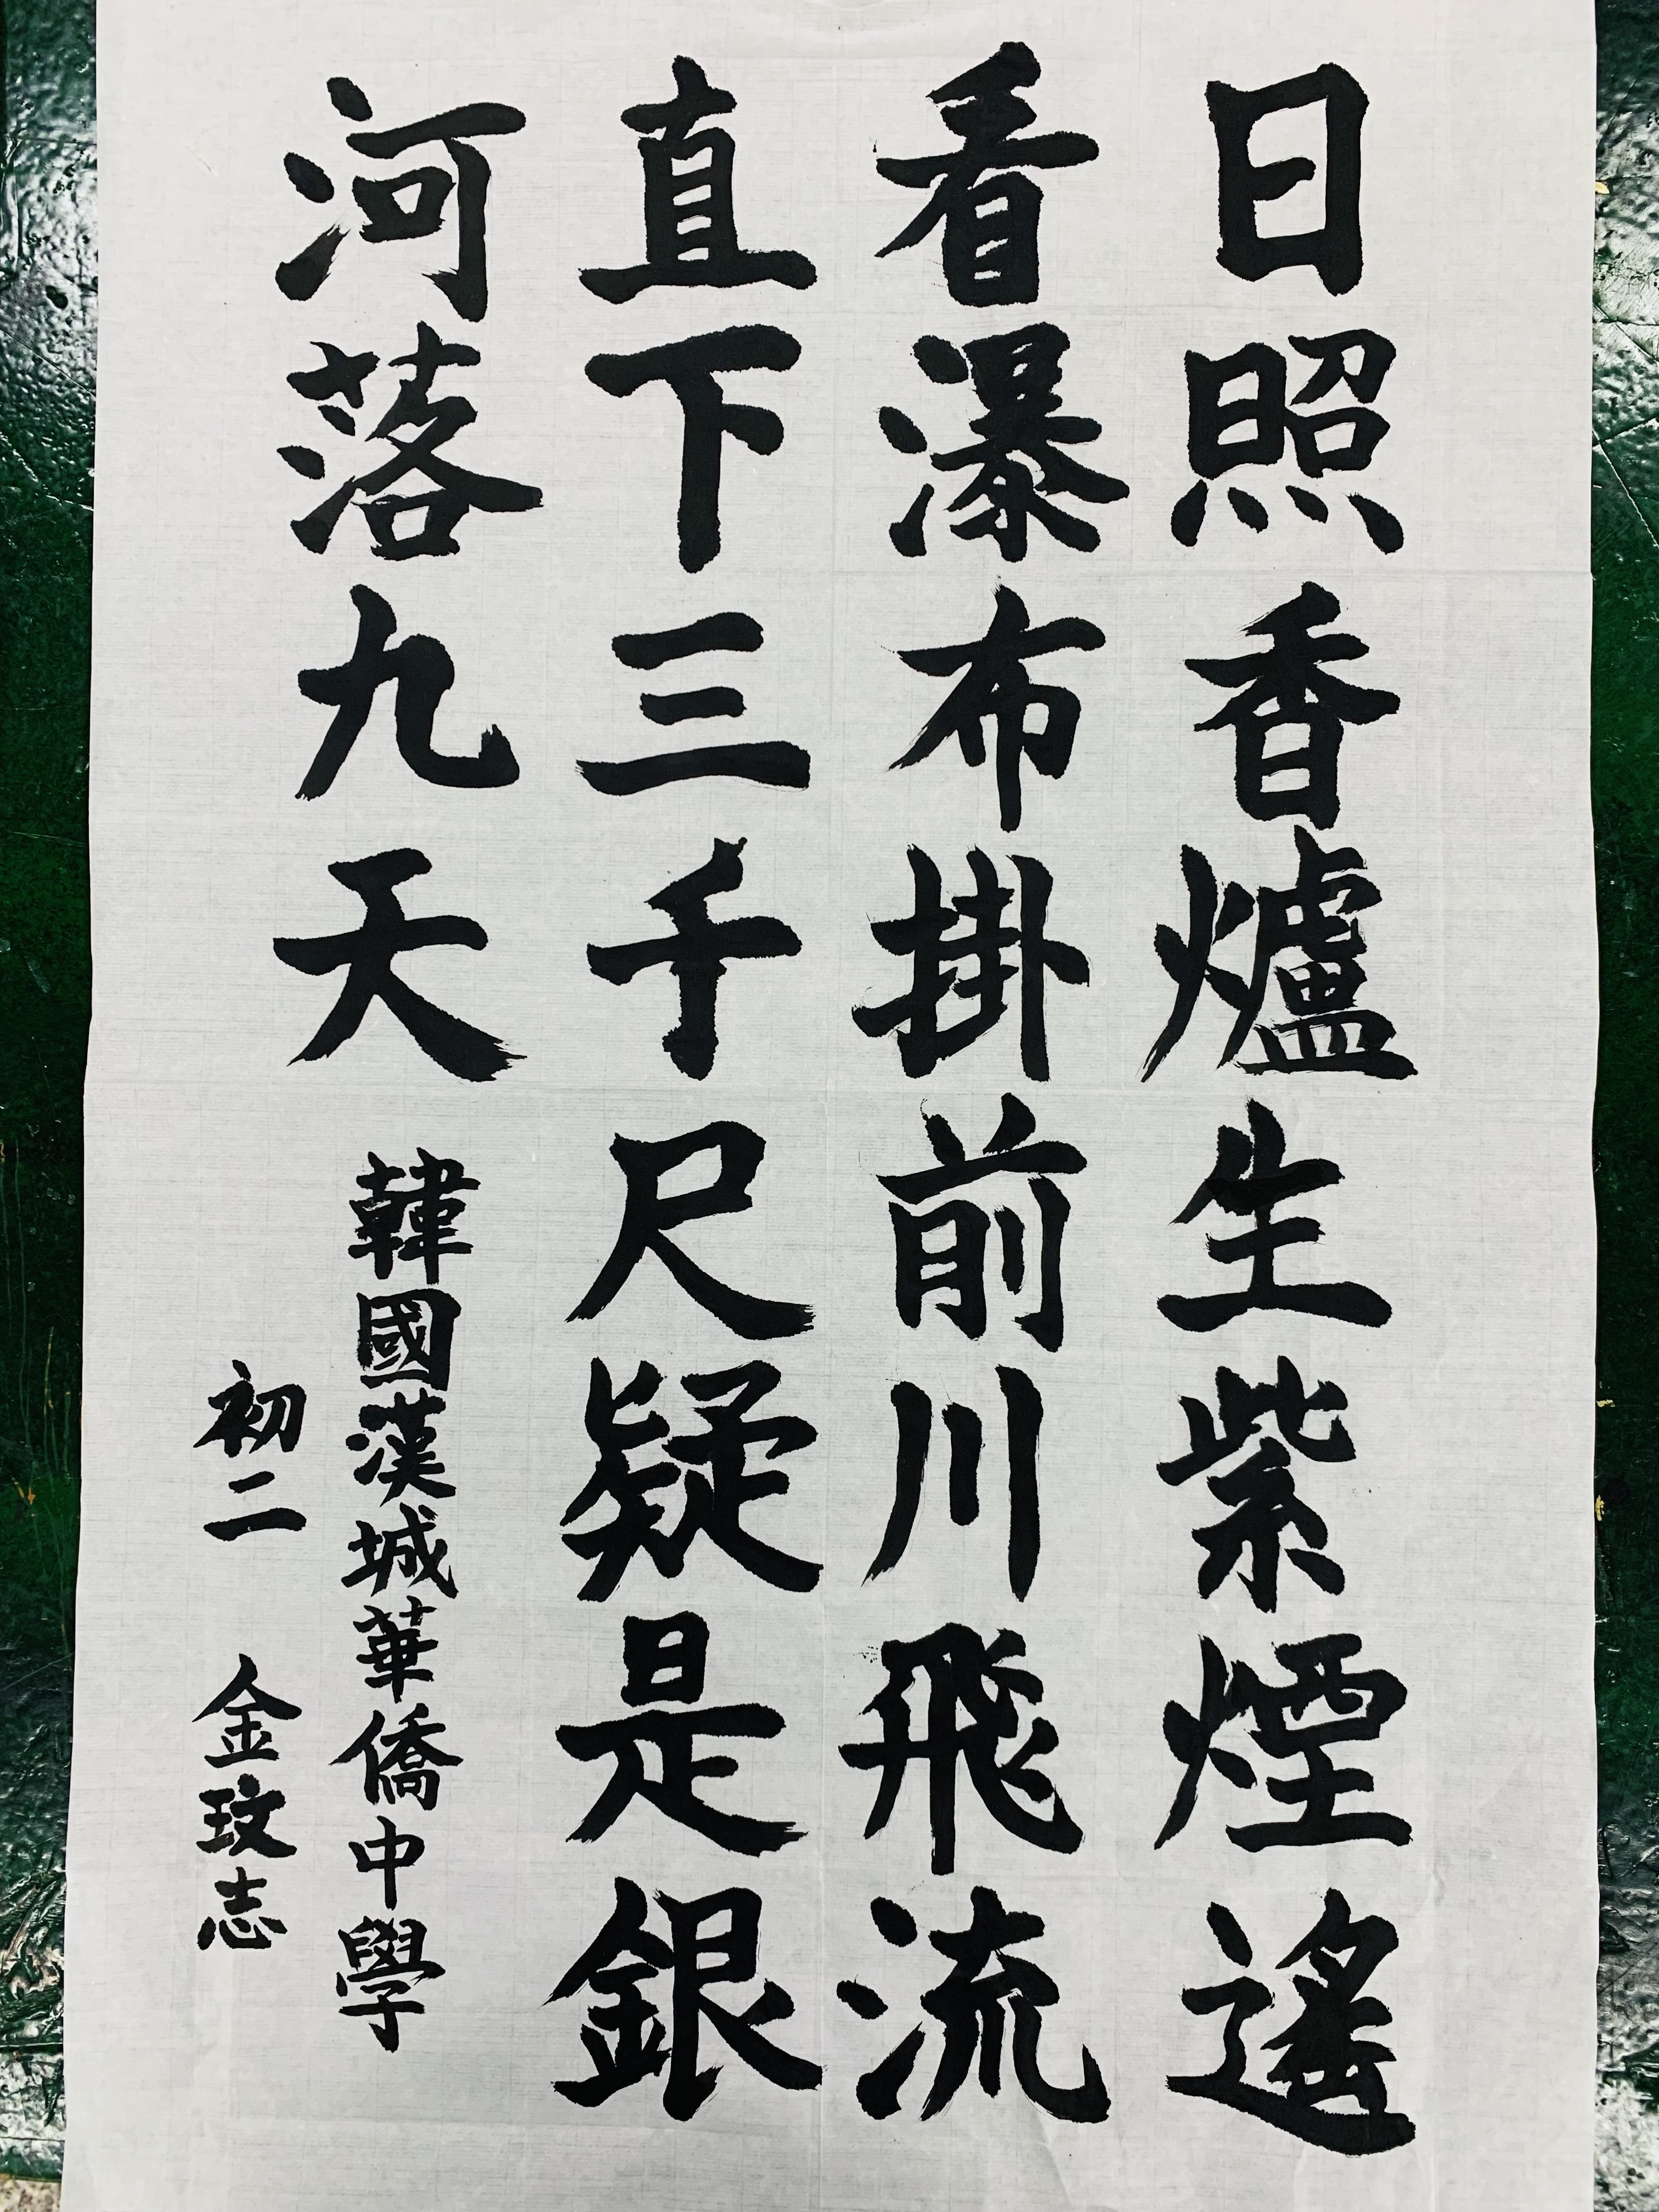 日照香爐生紫煙遙
看瀑布掛前川飛流
直下三千尺疑是銀
河落九天
韓國漢城華僑中學
初二 金玟志